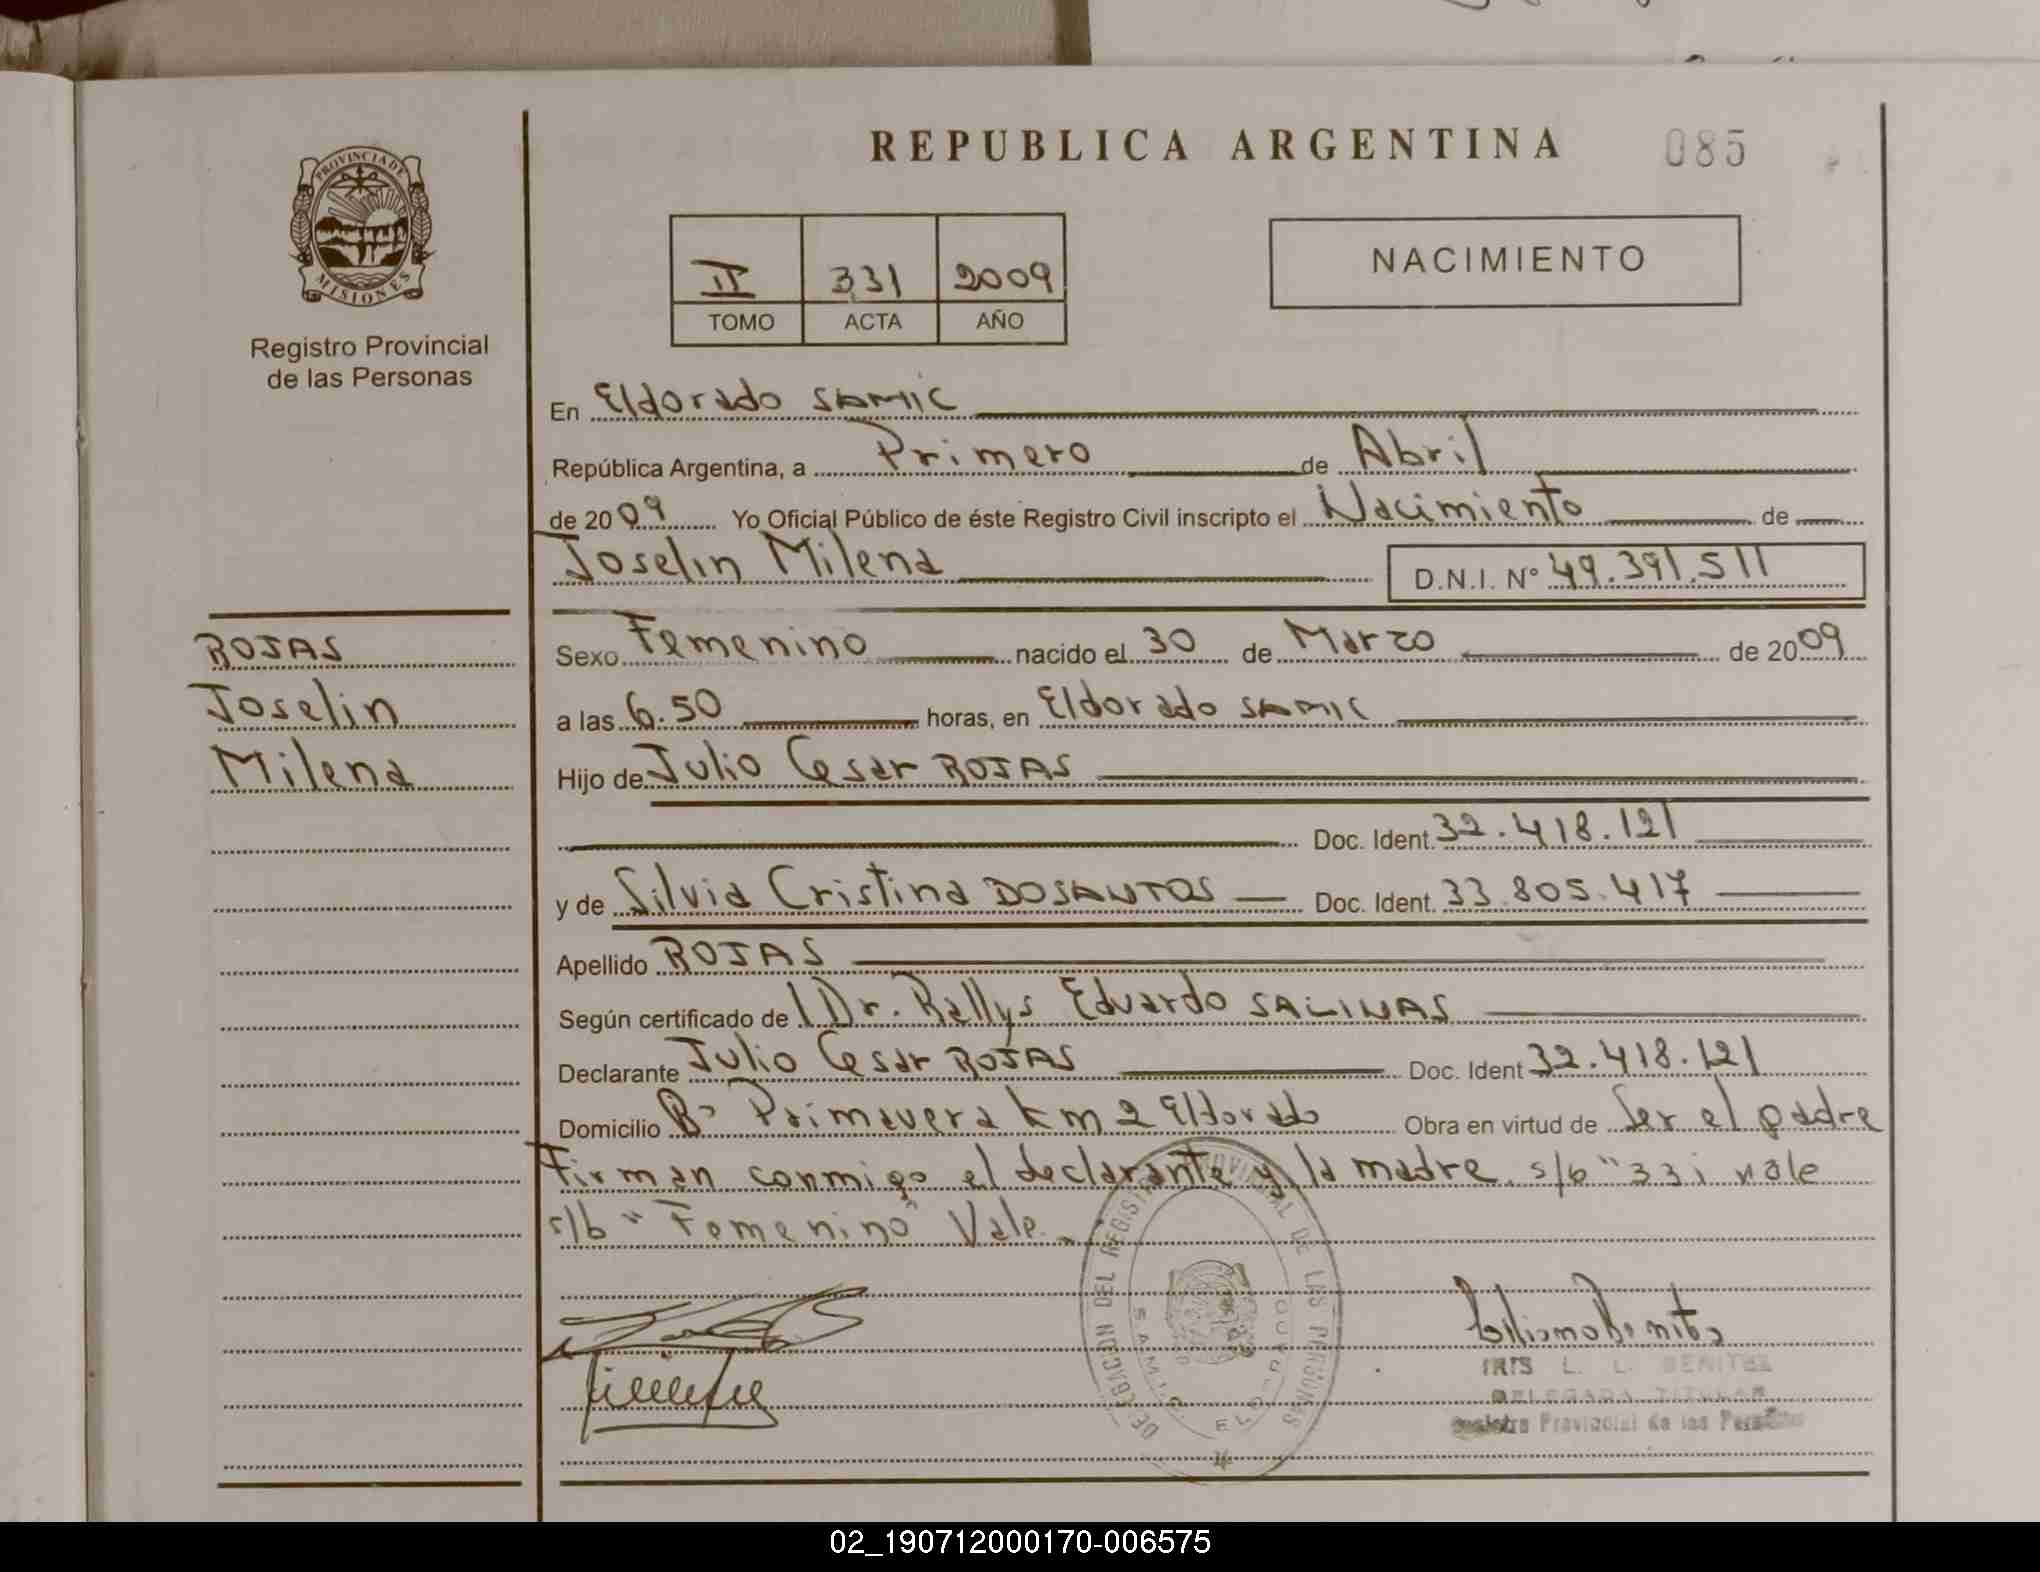 REPUBLICA ARGENTINA 085
PROVINCIA DE
MISIONES
Registro Provincial
de las Personas
II 331 2009
TOMO ACTA AÑO
NACIMIENTO
En Eldorado SAMIC
República Argentina, a Primero de Abril
de 2009 Yo Oficial Público de éste Registro Civil inscripto el Nacimiento de
Joselin Milena D.N.I. Nº 49.391.511
ROJAS
Joselin
Milena
Sexo Femenino nacido el 30 de Marzo de 2009
a las 6.50 horas, en Eldorado SAMIC
Hijo de Julio Cesar ROJAS
Doc. Ident. 32.418.121
y de Silvia Cristina DOSANTOS Doc. Ident. 33.805.417
Apellido ROJAS
Según certificado de Dr. Rallys Eduardo SALINAS
Declarante Julio Cesar ROJAS Doc. Ident 32.418.121
Domicilio Bº Primavera km 2 Eldorado Obra en virtud de Ser el padre
Firman conmigo el declarante y la madre. s/b "331 vale
s/b "Femenino" Vale.
DELEGACION DEL REGISTRO PROVINCIAL DE LAS PERSONAS
S.A.M.I.C.
ELDORADO
IRIS L. L. BENITEZ
DELEGADA TITULAR
Registro Provincial de las Personas
02_190712000170-006575